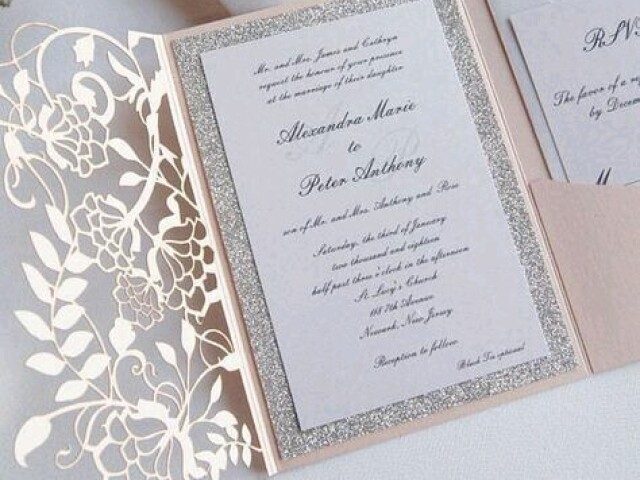 Mr. and Mrs. James and Cathryn
request the honour of your presence
at the marriage of their daughter
Alexandra Marie
to
Peter Anthony
son of Mr. and Mrs. Anthony and Rose
Saturday, the third of January
two thousand and eighteen
half past three o'clock in the afternoon
St. Lucy's Church
118 7th Avenue
Newark, New Jersey
Reception to follow
Black Tie optional
RSV
The favor of a
by Decem
M